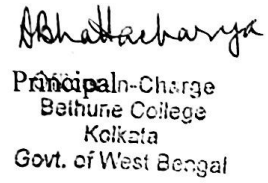 ABhattacharya
Principal
In-Charge
Bethune College
Kolkata
Govt. of West Bengal